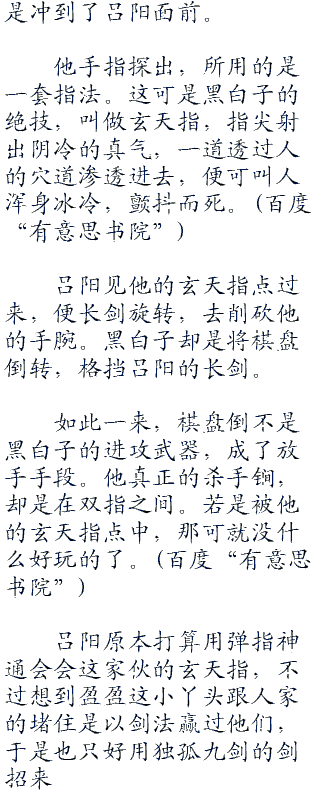 是冲到了吕阳面前。
他手指探出，所用的是
一套指法。这可是黑白子的
绝技，叫做玄天指，指尖射
出阴冷的真气，一道透过人
的穴道渗透进去，便可叫人
浑身冰冷，颤抖而死。(百度
“有意思书院”)
吕阳见他的玄天指点过
来，便长剑旋转，去削砍他
的手腕。黑白子却是将棋盘
倒转，格挡吕阳的长剑。
如此一来，棋盘倒不是
黑白子的进攻武器，成了放
手手段。他真正的杀手锏，
却是在双指之间。若是被他
的玄天指点中，那可就没什
么好玩的了。(百度“有意思
书院”)
吕阳原本打算用弹指神
通会会这家伙的玄天指，不
过想到盈盈这小丫头跟人家
的堵住是以剑法赢过他们，
于是也只好用独孤九剑的剑
招来